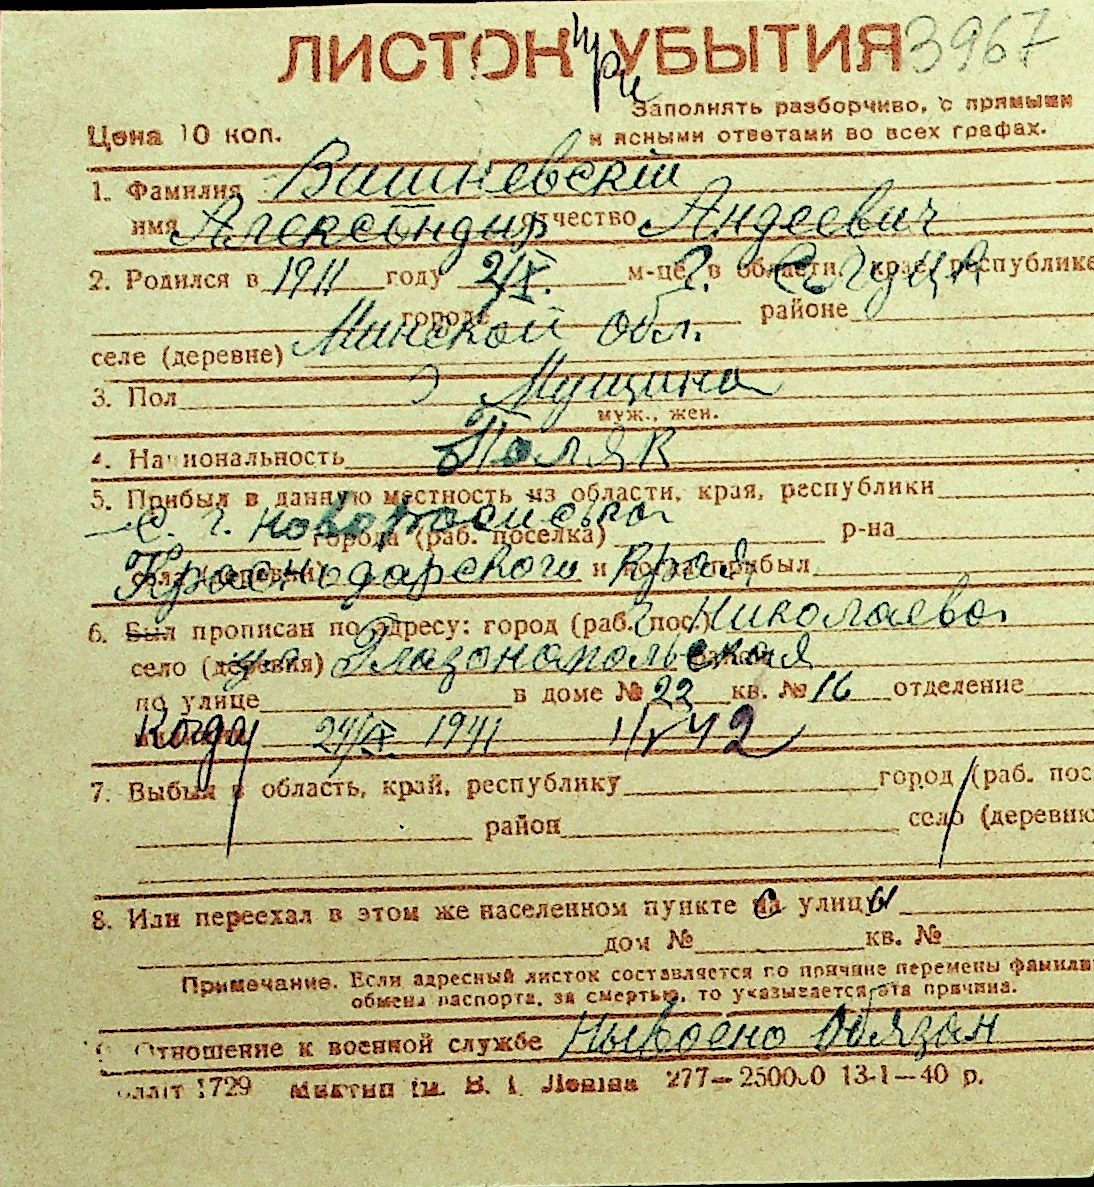 ЛИСТОК УБЫТИЯ 3967
при
Заполнять разборчиво, с прямыми
Цена 10 коп. и ясными ответами во всех графах.
1. Фамилия Вишневский
имя Александр отчество Андеевич
2. Родился в 1911 году 2/X. м-це, в области, крае, республике
г.
городе районе
Минской обл.
селе (деревне)
3. Пол Мущина
муж., жен.
4. Национальность Поляк
5. Прибыл в данную местность из области, края, республики
с. г. новороسийска
города (раб. поселка) р-на
села (деревни) и когда прибыл
Краснодарского Края
6. Был прописан по адресу: город (раб. пос.) г. Николаева
село (деревня)
по улице в доме № 22 кв. № 16 отделение
Когда 1941
7. Выбыл в область, край, республику город (раб. пос
район село (деревню
8. Или переехал в этом же населенном пункте на улицу
дом № кв. №
Примечание. Если адресный листок составляется по причине перемены фамилии
обмена паспорта, за смертью, то указывается эта причина.
9. Отношение к военной службе Обязан
1729 им. В. И. Ленина 277—250000 13-1—40 р.